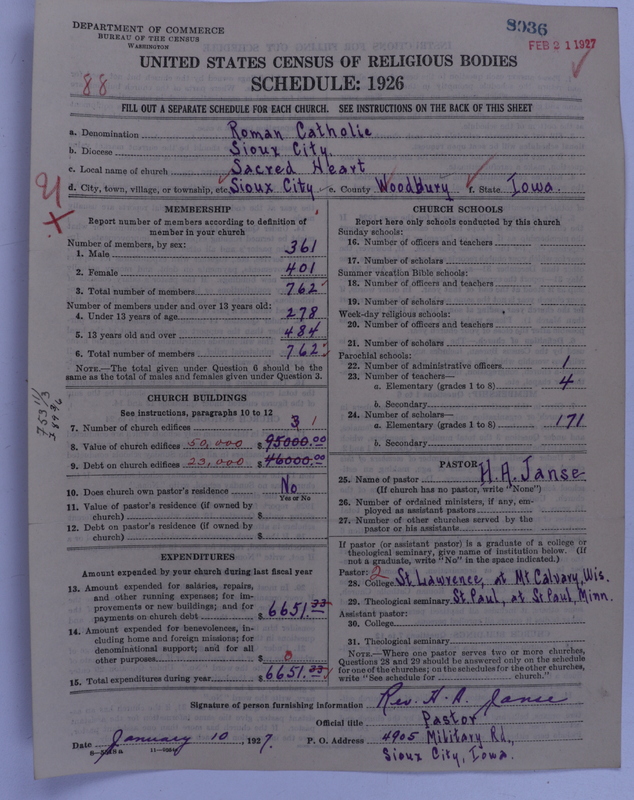 DEPARTMENT OF COMMERCE
BUREAU OF THE CENSUS
WASHINGTON
8936
FEB 21 1927
UNITED STATES CENSUS OF RELIGIOUS BODIES
SCHEDULE: 1926
88
FILL OUT A SEPARATE SCHEDULE FOR EACH CHURCH. SEE INSTRUCTIONS ON THE BACK OF THIS SHEET
a. Denomination Roman Catholic
b. Diocese Sioux City.
c. Local name of church Sacred Heart
d. City, town, village, or township, etc. Sioux City e. County Woodbury f. State Iowa.
MEMBERSHIP
Report number of members according to definition of
member in your church
Number of members, by sex:
1. Male 361
2. Female 401
3. Total number of members 762
Number of members under and over 13 years old:
4. Under 13 years of age 278
5. 13 years old and over 484
6. Total number of members 762
NOTE.—The total given under Question 6 should be the
same as the total of males and females given under Question 3.
CHURCH BUILDINGS
See instructions, paragraphs 10 to 12
7. Number of church edifices 3 1
8. Value of church edifices 50,000 $ 95000.00
9. Debt on church edifices 23,000 $ 46000.00
10. Does church own pastor's residence No
Yes or No
11. Value of pastor's residence (if owned by
church) $
12. Debt on pastor's residence (if owned by
church) $
EXPENDITURES
Amount expended by your church during last fiscal year
13. Amount expended for salaries, repairs,
and other running expenses; for im-
provements or new buildings; and for
payments on church debt $ 6651.33
14. Amount expended for benevolences, in-
cluding home and foreign missions; for
denominational support; and for all
other purposes $
15. Total expenditures during year $ 6651.33
CHURCH SCHOOLS
Report here only schools conducted by this church
Sunday schools:
16. Number of officers and teachers
17. Number of scholars
Summer vacation Bible schools:
18. Number of officers and teachers
19. Number of scholars
Week-day religious schools:
20. Number of officers and teachers
21. Number of scholars
Parochial schools:
22. Number of administrative officers 1
23. Number of teachers—
a. Elementary (grades 1 to 8) 4
b. Secondary
24. Number of scholars—
a. Elementary (grades 1 to 8) 171
b. Secondary
PASTOR
25. Name of pastor H.A. Janse
(If church has no pastor, write "None")
26. Number of ordained ministers, if any, em-
ployed as assistant pastors
27. Number of other churches served by the
pastor or his assistants
If pastor (or assistant pastor) is a graduate of a college or
theological seminary, give name of institution below. (If
not a graduate, write "No" in the space indicated.)
Pastor: 2
28. College St. Lawrence, at Mt Calvary, Wis.
29. Theological seminary St. Paul, at St Paul, Minn.
Assistant pastor:
30. College
31. Theological seminary
NOTE.—Where one pastor serves two or more churches,
Questions 28 and 29 should be answered only on the schedule
for one of the churches; on the schedules for the other churches,
write "See schedule for church."
Signature of person furnishing information Rev. H. A. Janse
Official title Pastor
Date January 10, 1927. P. O. Address 4905 Military Rd.,
Sioux City, Iowa.